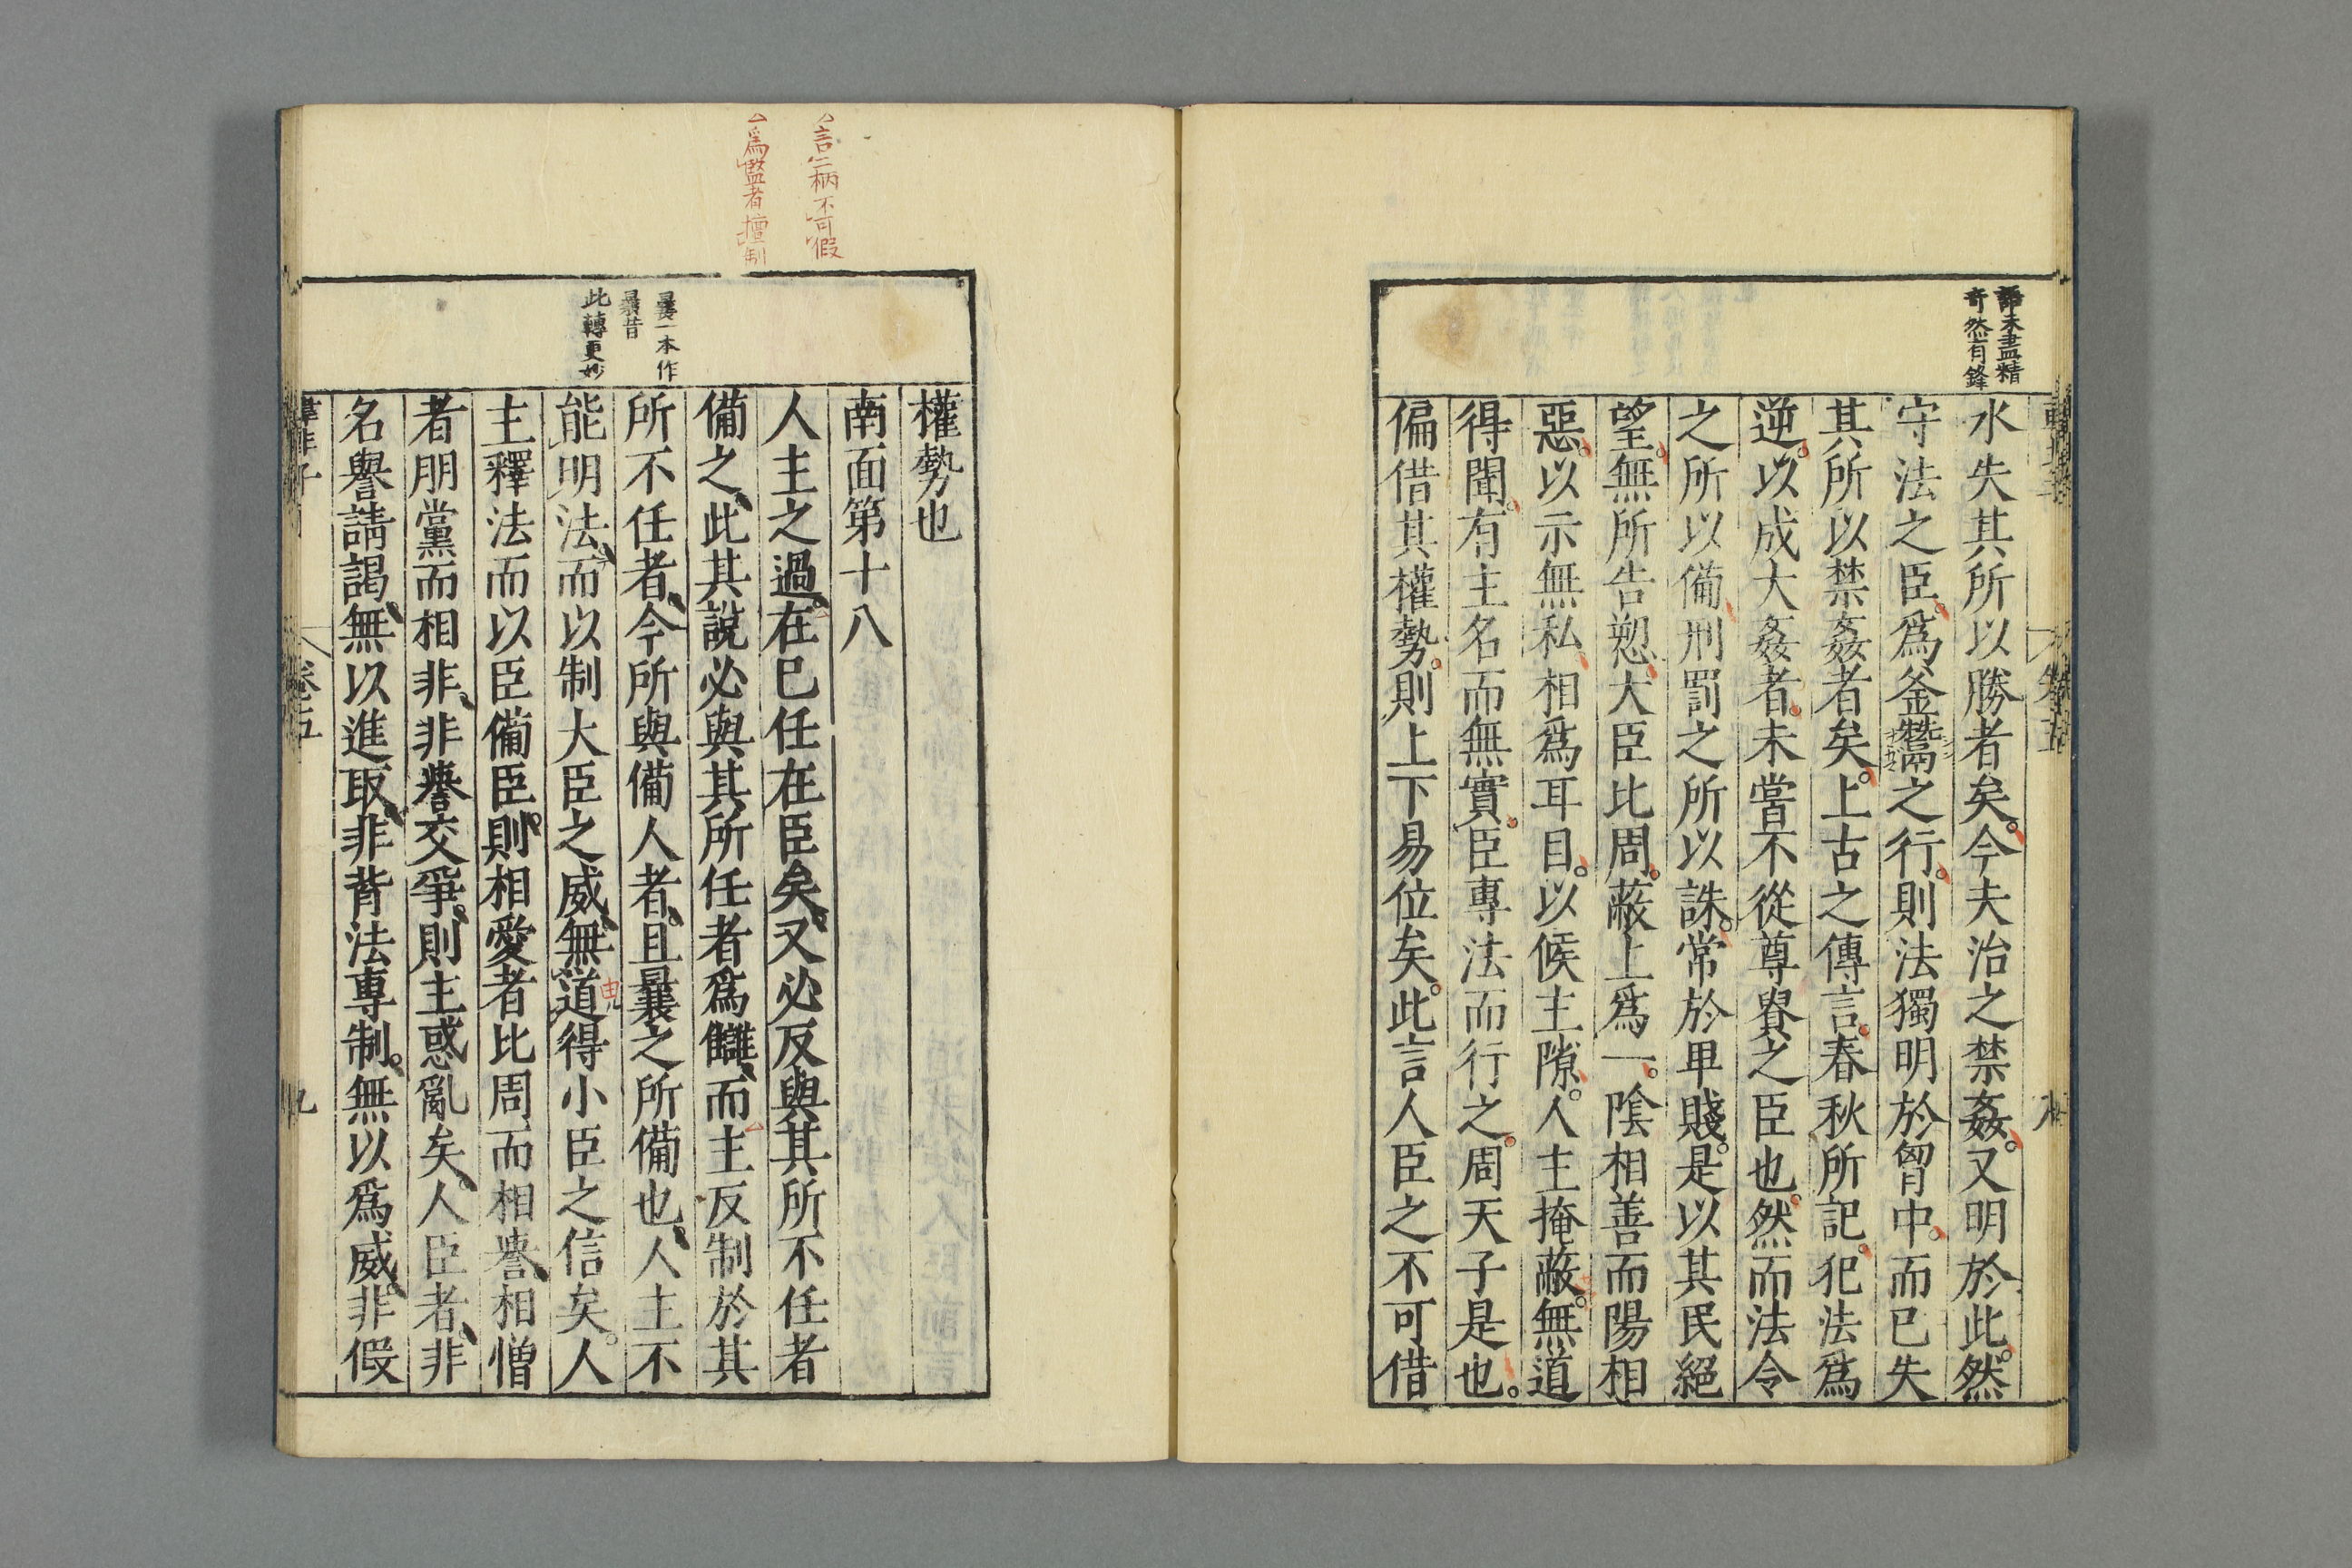 語未盡精
奇然有鋒
水失其所以勝者矣。今夫治之禁姦。又明於此。然
守法之臣。爲釜鬵之行。則法獨明於胷中。而已失
其所以禁姦者矣。上古之傳言。春秋所記。犯法爲
逆。以成大姦者。未嘗不從尊貴之臣也。然而法令
之所以備刑罰之所以誅。常於卑賤。是以其民絕
望。無所告愬。大臣比周。蔽上爲一。陰相善而陽相
惡。以示無私。相爲耳目。以候主隙。人主掩蔽。無道
得聞。有主名而無實。臣專法而行之。周天子是也。
偏借其權勢。則上下易位矣。此言人臣之不可借
言二柄不可假
爲讐者擅制
曩一本作
曩昔
此轉更妙
權勢也
南面第十八
人主之過、在已任在臣矣、又必反與其所不任者
備之、此其說必與其所任者爲讎、而主反制於其
所不任者、今所與備人者、且曩之所備也、人主不
能明法、而以制大臣之威、無道得小臣之信矣。人
由
主釋法而以臣備臣、則相愛者比周而相譽、相憎
者朋黨而相非、非譽交爭、則主惑亂矣、人臣者、非
名譽請謁、無以進取、非背法專制。無以爲威、非假
卷五
九